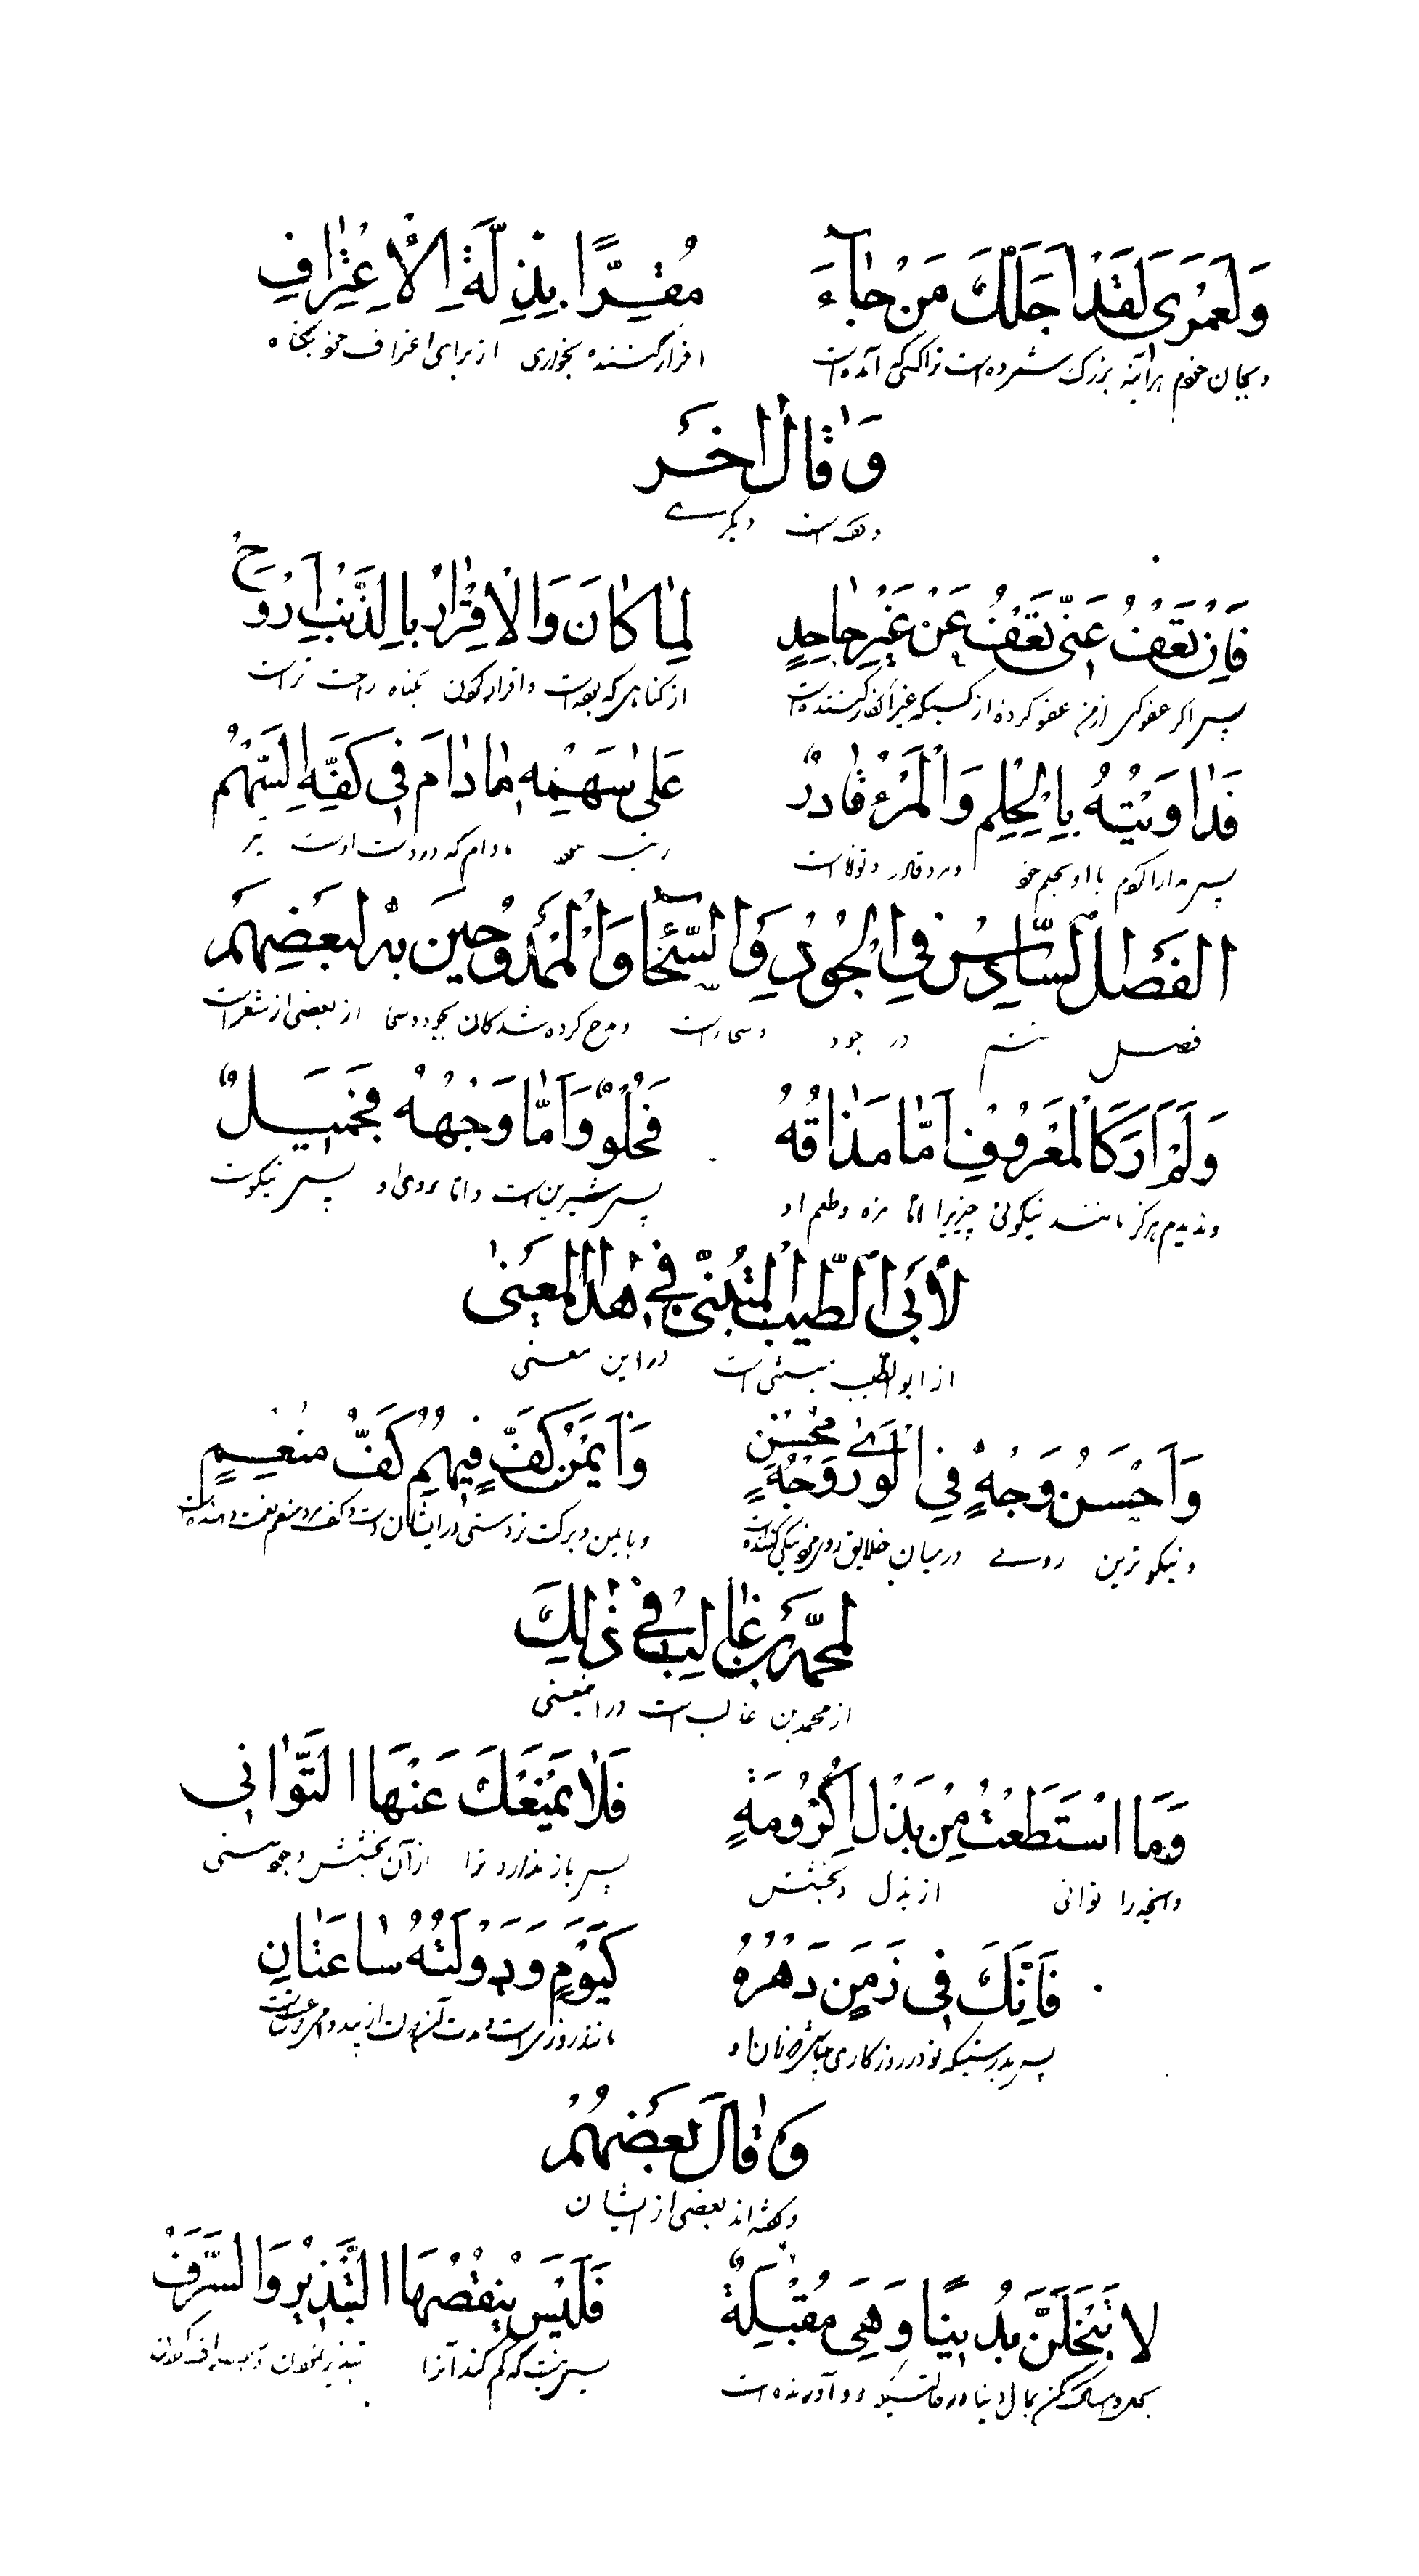 وَلَعَمْرِی لَقَدْ اَجَلَّكَ مَنْ جٰآءَ مُقِرًّا بِذِلَّةِ الْاِعْتِرٰافِ
و بجان خودم هرآینه بزرک شمرده است ترا کسی که آمده است اقرار کننده بخواری از برای اعتراف خود بکناه
وَ قٰالَ اخَر
و گفته است دیکرے
فَاِنْ تَعْفُ عَنّی تَعْفُ عَنْ غَیْرِ جٰاحِدٍ لِمٰا كٰانَ وَالْاِقْرٰارُ بِالذَّنْبِ اَرْوَحُ
پس اکر عفو کنی از من عفو کرده از کسیکه غیر انکار کننده است از کناهی که بوده است و اقرار کردن بکناه راحت تر است
فَدٰاوَیْتُهُ بِالْحِلْمِ وَالْمَرْءُ قٰادِرٌ عَلیٰ سَهْمِه مٰا دٰامَ فی كَفِّهِ السَّهْمُ
پس مدارا کردم با او بحلم خود و مرد قادر و توانا است مادام که در دست اوست تیر
الفَصْلُ السّٰادِسُ فِی الْجُوْدِ وَالسَّخٰآءِ وَالْمَمْدُوحینَ بِهِ لِبَعْضِهِمْ
فصل ششم در جود و سخاوت و مدح کرده شدکان بجود و سخا از بعضی از شعرا است
وَلَمْ اَرَ كَالْمَعْرُوْفِ اَمّٰا مَذٰاقُهُ فَحُلْوٌ وَاَمّٰا وَجْهُهُ فَجَمیلٌ
و ندیدم هرکز مانند نیکوئی چیزیرا امّا مزه و طعم او پس شیرین است و امّا روی او پس نیکوست
لِاَبی الطَّیِّبِ الْمُتَنَبّی فی هٰذَا الْمَعْنیٰ
از ابو الطیب متنبی است در این معنی
وَاَحْسَنُ وَجْهٍ فِی الْوَرٰی وَجْهُ مُحْسِنٍ وَاَیْمَنُ كَفٍّ فِیْهِمُ كَفُّ مُنْعِمٍ
و نیکو ترین روے در میان خلایق روی نیکی کننده است و با یمن و برکت تر دستی در ایشان است و کف مرد منعم نعمت دهنده است
لِمُحَمَّدِ بْنِ غٰالِبٍ فی ذٰلِكَ
از محمد بن غالب است در این معنی
وَمَا اسْتَطَعْتَ مِنْ بَذْلِ اُكْرُوْمَةٍ فَلٰا یَمْنَعَكَ عَنْهَا التَّوٰانی
و آنچه را توانی از بذل و بخشش پس باز ندارد ترا از آن بخشش و جود سستی
فَاِنَّكَ فی زَمَنٍ دَهْرُهُ كَیَوْمٍ وَ دَوْلَتُهُ سٰاعَتٰانِ
پس بدرستیکه تو در روزکاری مانند روزی است
وَ قٰالَ بَعْضُهُمْ
و گفته اند بعضی از ایشان
لا تَبْخَلَنَّ بِدُنْیًا وَهِیَ مُقْبِلَةٌ فَلَیْسَ یَنْقُصُهَا التَّبْذِیْرُ وَالسَّرَفُ
بخل و امساک مکن بمال دنیا در حالتیکه رو آورنده است پس نیست که کم کند آنرا تبذیر